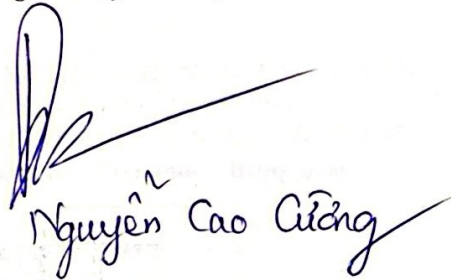 Nguyễn Cao Cường